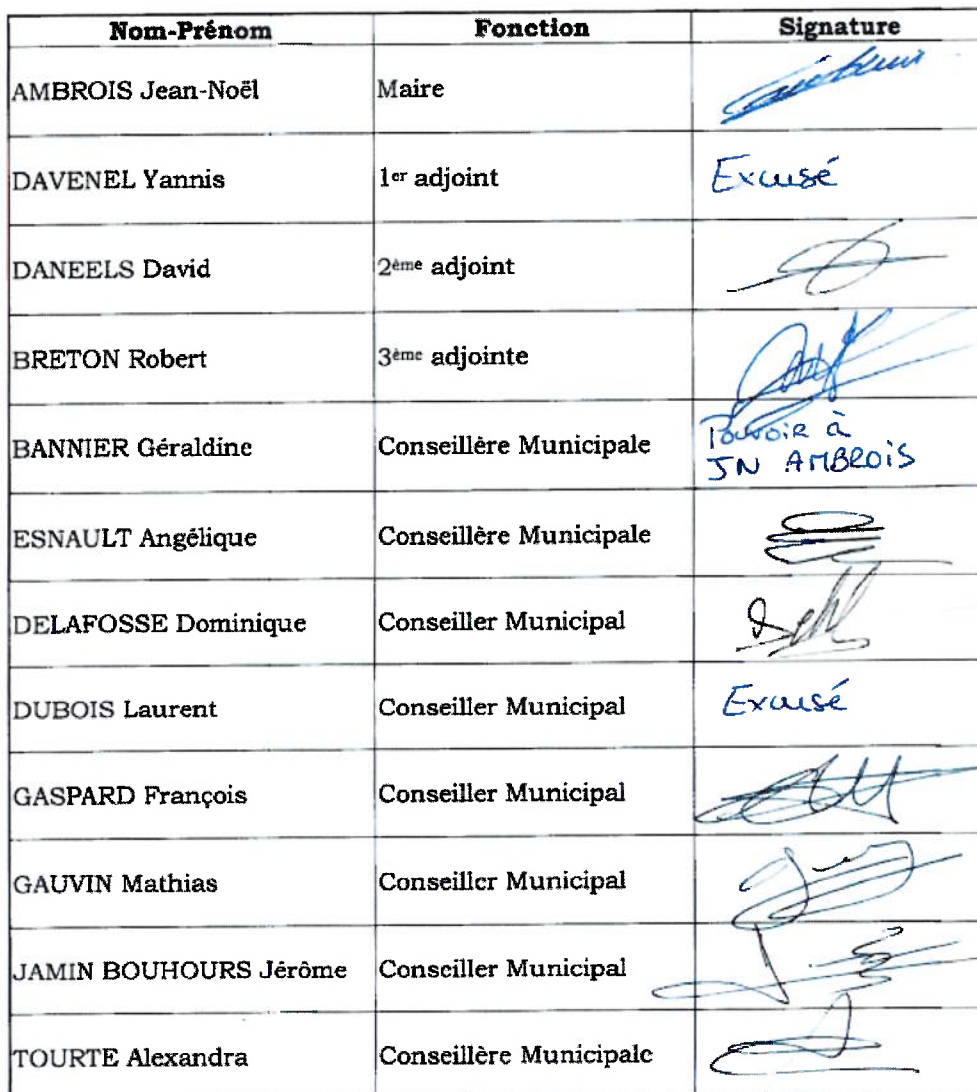 Nom-Prénom Fonction Signature
AMBROIS Jean-Noël Maire
DAVENEL Yannis 1er adjoint Excusé
DANEELS David 2ème adjoint
BRETON Robert 3ème adjointe
BANNIER Géraldine Conseillère Municipale Pouvoir à
JN AMBROIS
ESNAULT Angélique Conseillère Municipale
DELAFOSSE Dominique Conseiller Municipal
DUBOIS Laurent Conseiller Municipal Excusé
GASPARD François Conseiller Municipal
GAUVIN Mathias Conseiller Municipal
JAMIN BOUHOURS Jérôme Conseiller Municipal
TOURTE Alexandra Conseillère Municipale